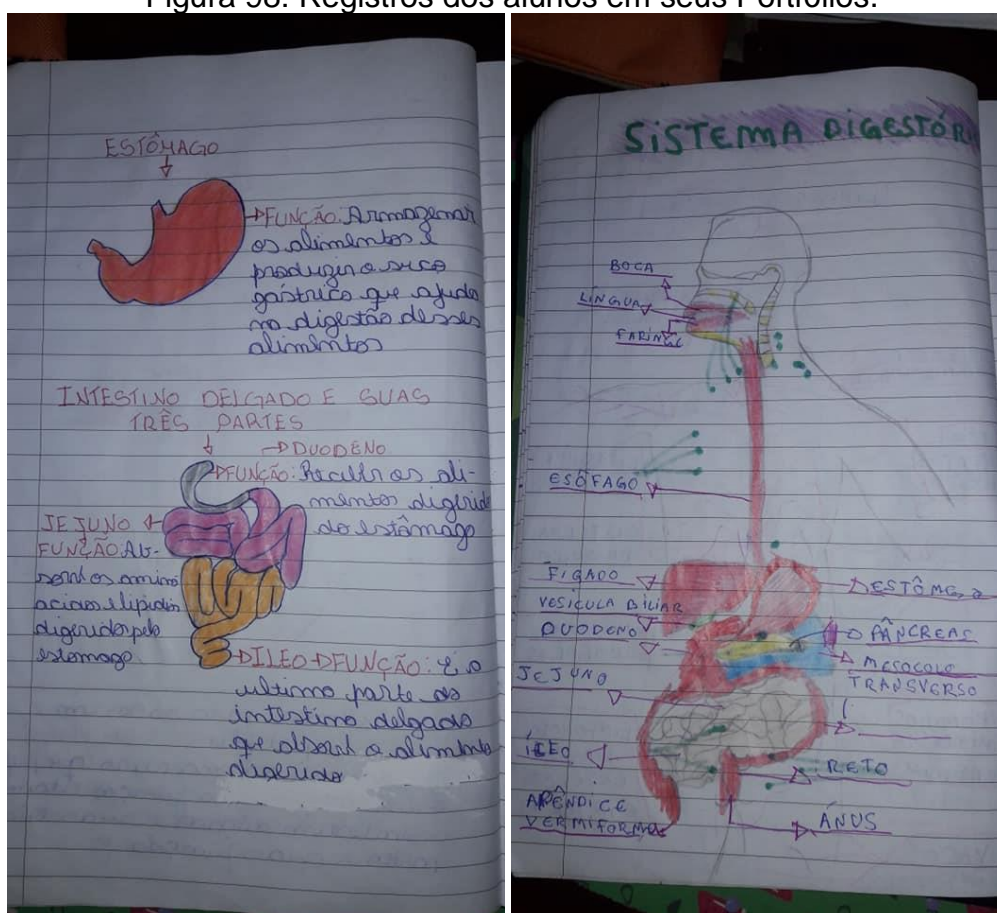 Figura 98: Registros dos alunos em seus Portfólios.
ESTÔMAGO
FUNÇÃO: Armazenar
os alimentos e
produzir o suco
gástrico que ajuda
na digestão desses
alimentos
INTESTINO DELGADO E SUAS
TRÊS PARTES
DUODENO
FUNÇÃO: Receber os ali-
mentos digerido
do estômago
JEJUNO
FUNÇÃO: Ab-
sorve os amino
acidos e lipidios
digeridos pelo
estomago
ILEO FUNÇÃO: É a
ultima parte do
intestino delgado
que absorve o alimento
digerido
SISTEMA DIGESTÓRI
BOCA
LÍNGUA
FARINGE
ESÔFAGO
FIGADO
ESTÔMAGO
VESICULA BILIAR
DUODENO
PÂNCREAS
MESOCOLO
TRANSVERSO
JEJUNO
ÍLEO
RETO
APÊNDICE
VERMIFORME
ÂNUS